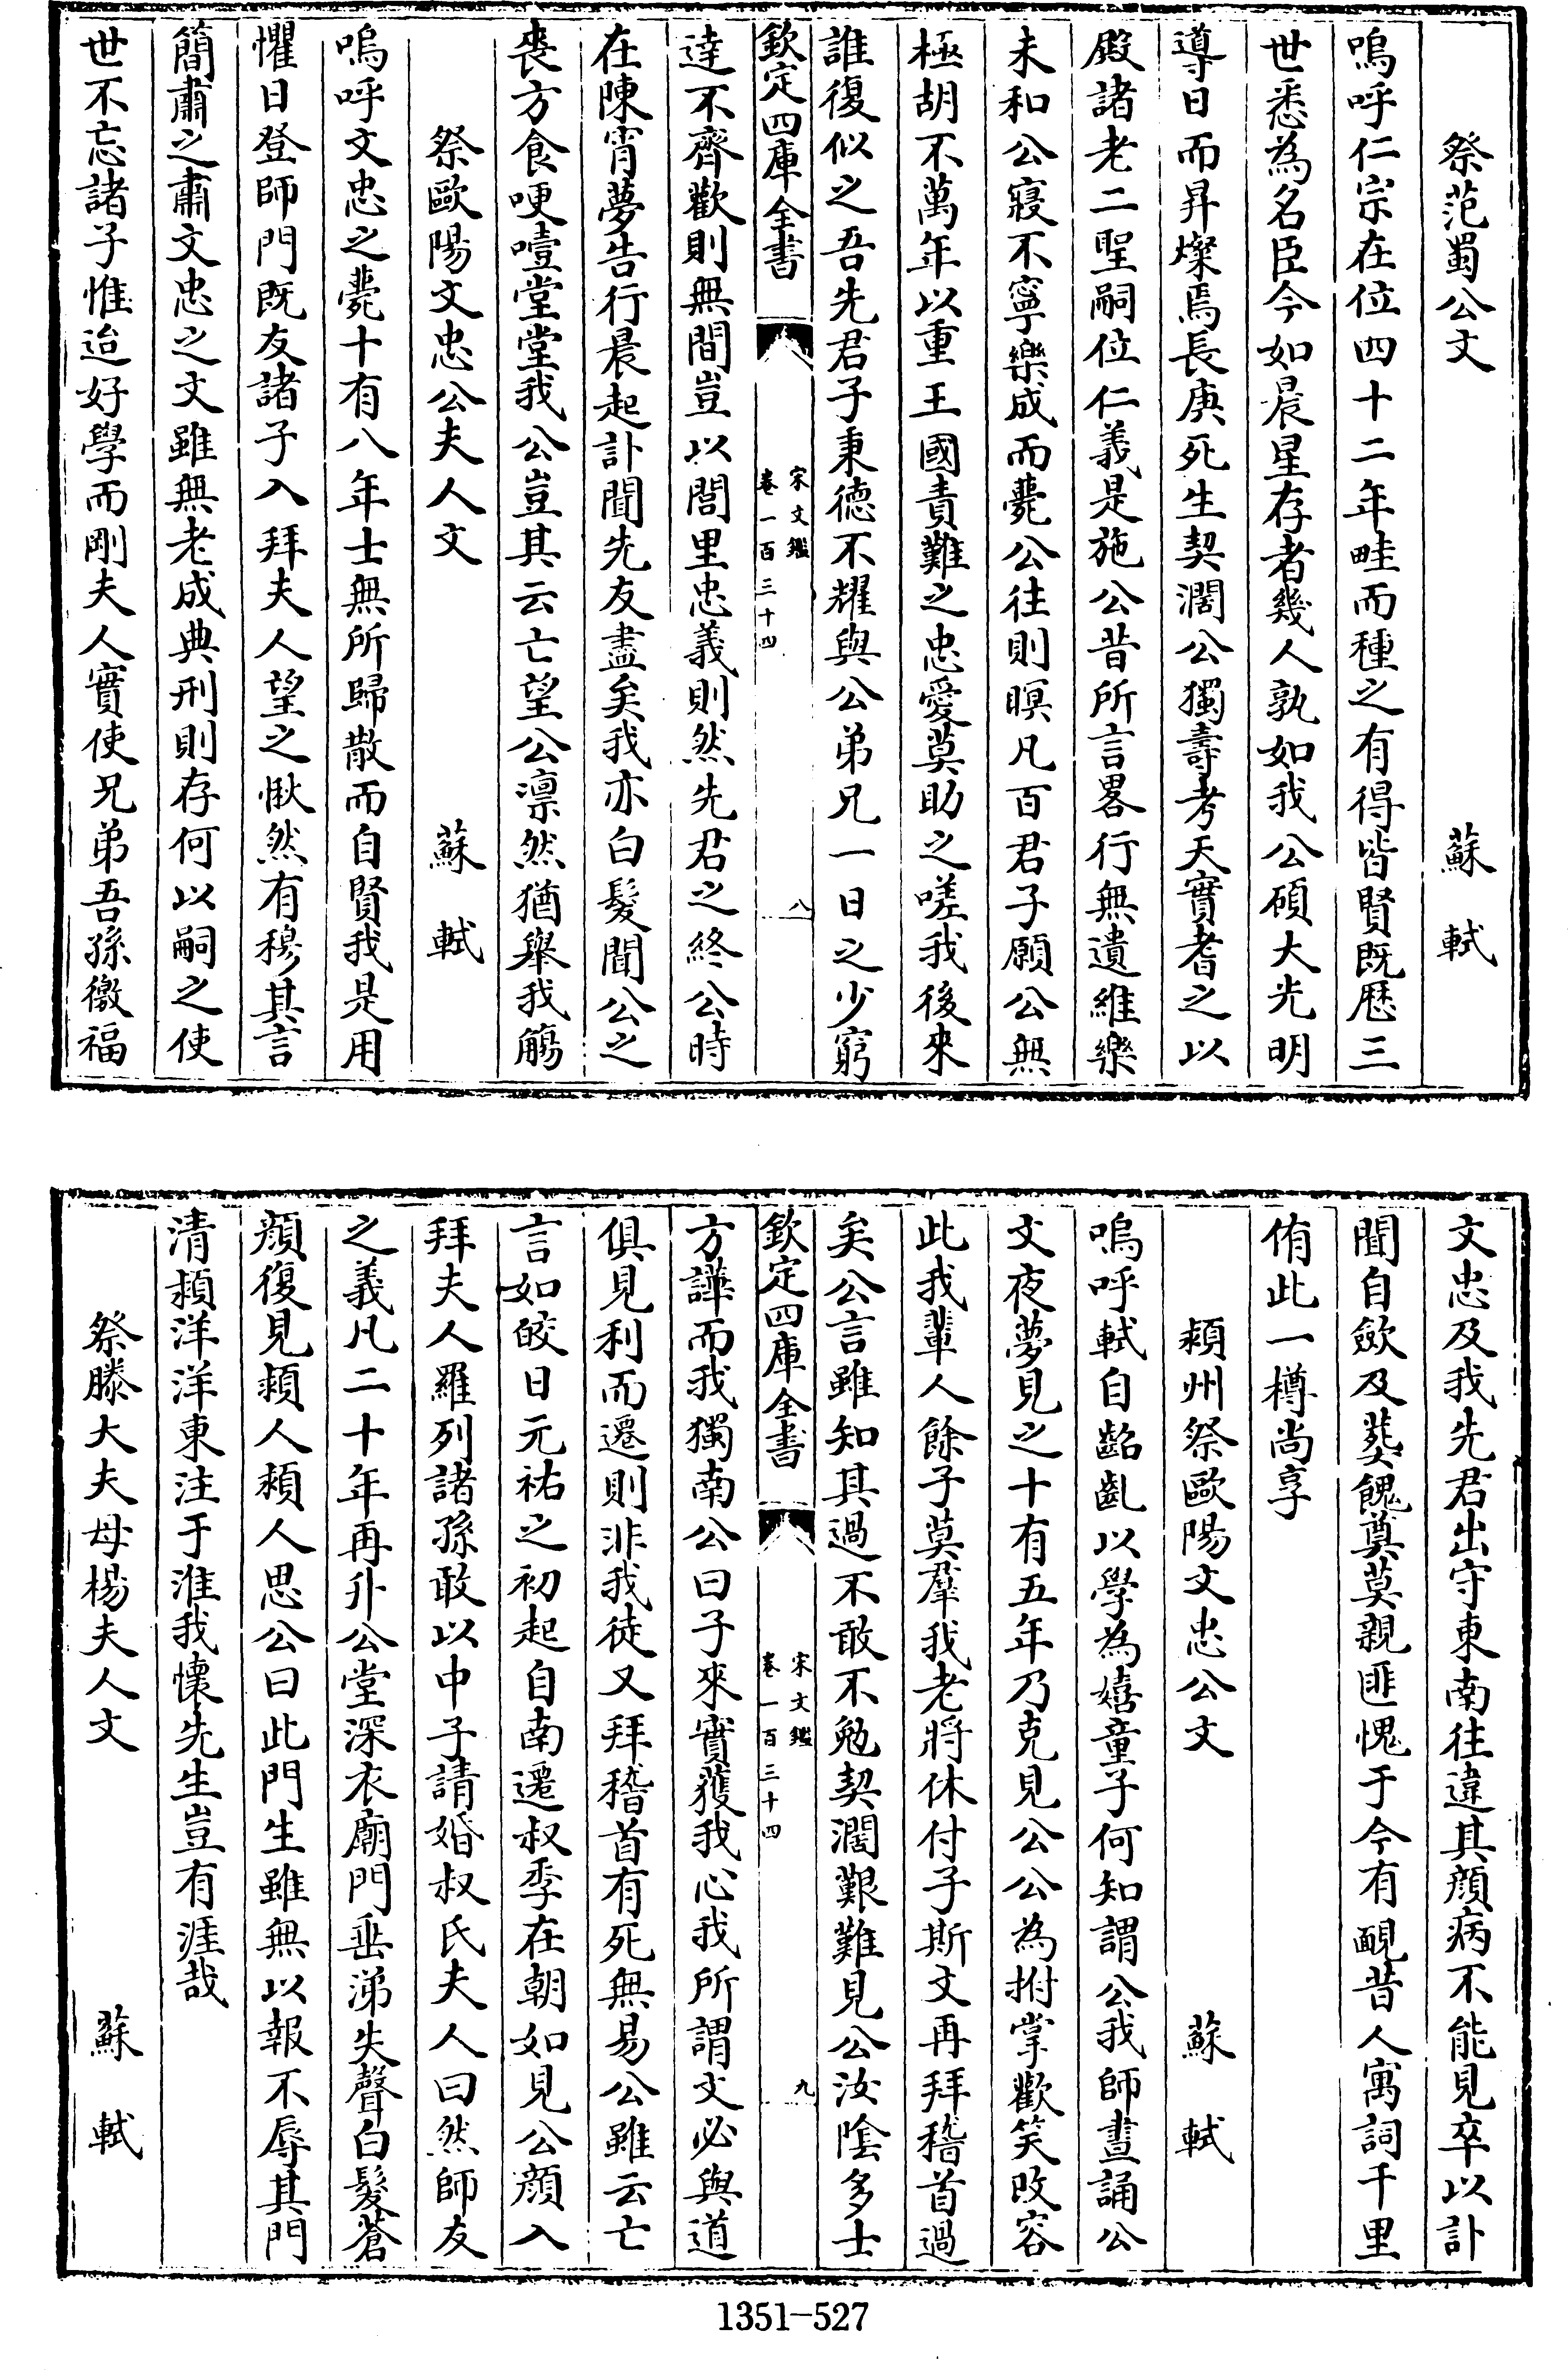 祭范蜀公文　蘇　軾
嗚呼仁宗在位四十二年畦而種之有得皆賢既歴三
世悉為名臣今如晨星存者幾人孰如我公碩大光明
導日而昇燦焉長庚死生契濶公獨壽考天實耆之以
殿諸老二聖嗣位仁義是施公昔所言畧行無遺維樂
未和公寢不寧樂成而薨公往則瞑凡百君子願公無
極胡不萬年以重王國責難之忠愛莫助之嗟我後來
誰復似之吾先君子秉德不耀與公弟兄一日之少窮
欽定四庫全書　宋文鑑　卷一百三十四　八
達不齊歡則無間豈以閭里忠義則然先君之終公時
在陳宵夢告行晨起訃聞先友盡矣我亦白髮聞公之
喪方食哽噎堂堂我公豈其云亡望公凛然猶舉我觴
祭歐陽文忠公夫人文　蘇　軾
嗚呼文忠之薨十有八年士無所歸散而自賢我是用
懼日登師門既友諸子入拜夫人望之愀然有穆其言
簡肅之肅文忠之文雖無老成典刑則存何以嗣之使
世不忘諸子惟迨好學而剛夫人實使兄弟吾孫徼福
文忠及我先君出守東南往違其顔病不能見卒以訃
聞自斂及葬餽奠莫親匪愧于今有靦昔人寓詞千里
侑此一樽尚享
潁州祭歐陽文忠公文　蘇　軾
嗚呼軾自齠齔以學為嬉童子何知謂公我師晝誦公
文夜夢見之十有五年乃克見公公為拊掌歡笑改容
此我輩人餘子莫羣我老將休付子斯文再拜稽首過
矣公言雖知其過不敢不勉契濶艱難見公汝陰多士
欽定四庫全書　宋文鑑　卷一百三十四　九
方譁而我獨南公曰子來實獲我心我所謂文必與道
俱見利而遷則非我徒又拜稽首有死無易公雖云亡
言如皎日元祐之初起自南遷叔季在朝如見公顔入
拜夫人羅列諸孫敢以中子請婚叔氏夫人曰然師友
之義凡二十年再升公堂深衣廟門垂涕失聲白髮蒼
顔復見潁人潁人思公曰此門生雖無以報不辱其門
清潁洋洋東注于淮我懷先生豈有涯哉
祭滕大夫母楊夫人文　蘇　軾
1351-527